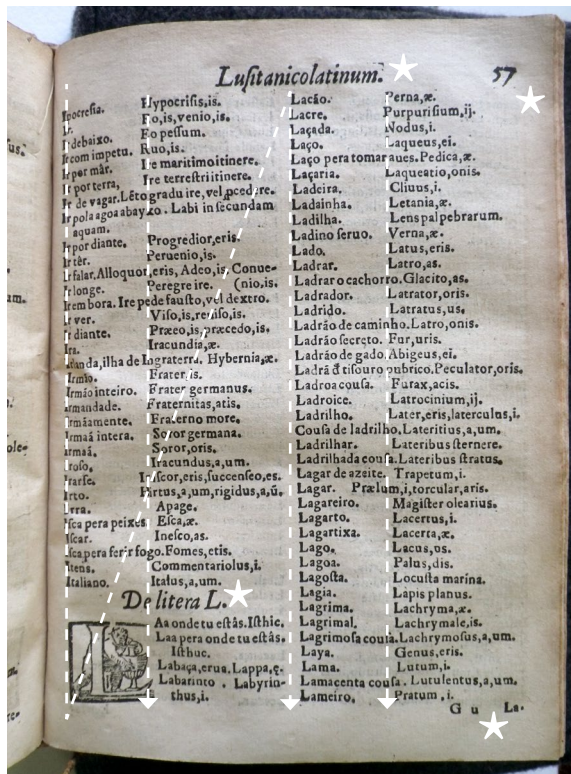 Lusitanicolatinum. 57
Hypocrisis,is.
Ir. Eo,is,venio,is.
Ir debaixo. Eo pessum.
Ir com impetu. Ruo,is.
Ir por mâr. Ire maritimo itinere.
Ir por terra, Ire terrestri itinere.
Ir de vagar. Lêto gradu ire, vel ꝓcedere.
Ir pola agoa abayxo. Labi in secundam
aquam.
Ir por diante. Progredior,eris.
Ir têr. Peruenio,is.
Ir falar. Alloquor,eris, Adeo,is. Conue-
Ir longe. Peregre ire. (nio,is.
Ir em bora. Ire pede fausto, vel dextro.
Ir ver. Viso,is,reuiso,is.
Ir diante. Præeo,is,præcedo,is.
Ira. Iracundia,æ.
Irlanda, ilha de Ingraterra. Hybernia,æ.
Irmão. Frater,is.
Irmão inteiro. Frater germanus.
Irmandade. Fraternitas,atis.
Irmãamente. Fraterno more.
Irmaã intera. Soror germana.
Irmaã. Soror,oris.
Iroso. Iracundus,a,um.
Irarse. Irascor,eris,succenseo,es.
Irto. Hirtus,a,um,rigidus,a,ũ.
Irra. Apage.
Isca pera peixes Esca,æ.
Iscar. Inesco,as.
Isca pera ferir fogo. Fomes,etis.
Itens. Commentariolus,i.
Italiano. Italus,a,um.
De litera L.
LAa onde tu estâs. Isthic.
Laa pera onde tu estâs.
Isthuc.
Labaça,erua. Lappa,ę.
Labarinto. Labyrin-
thus,i.
Lacão. Perna,æ.
Lacre. Purpurisium,ij.
Laçada. Nodus,i.
Laço. Laqueus,ei.
Laço pera tomar aues. Pedica,æ.
Laçaria. Laqueatio,onis.
Ladeira. Cliuus,i.
Ladainha. Letania,æ.
Ladilha. Lens palpebrarum.
Ladino seruo. Verna,æ.
Lado. Latus,eris.
Ladrar. Latro,as.
Ladrar o cachorro. Glacito,as.
Ladrador. Latrator,oris.
Ladrido. Latratus,us.
Ladrão de caminho. Latro,onis.
Ladrão secreto. Fur,uris.
Ladrão de gado. Abigeus,ei.
Ladrã đ tisouro pubrico. Peculator,oris.
Ladroa cousa. Furax,acis.
Ladroice. Latrocinium,ij.
Ladrilho. Later,eris,laterculus,i.
Cousa de ladrilho. Lateritius,a,um.
Ladrilhar. Lateribus sternere.
Ladrilhada cousa. Lateribus stratus.
Lagar de azeite. Trapetum,i.
Lagar. Prælum,i,torcular,aris.
Lagareiro. Magister olearius.
Lagarto. Lacertus,i.
Lagartixa. Lacerta,æ.
Lago. Lacus,us.
Lagoa. Palus,dis.
Lagosta. Locusta marina.
Lagia. Lapis planus.
Lagrima. Lachryma,æ.
Lagrimal. Lachrymale,is.
Lagrimosa cousa. Lachrymosus,a,um.
Laya. Genus,eris.
Lama. Lutum,i.
Lamacenta cousa. Lutulentus,a,um.
Lameiro. Pratum,i.
G u La-